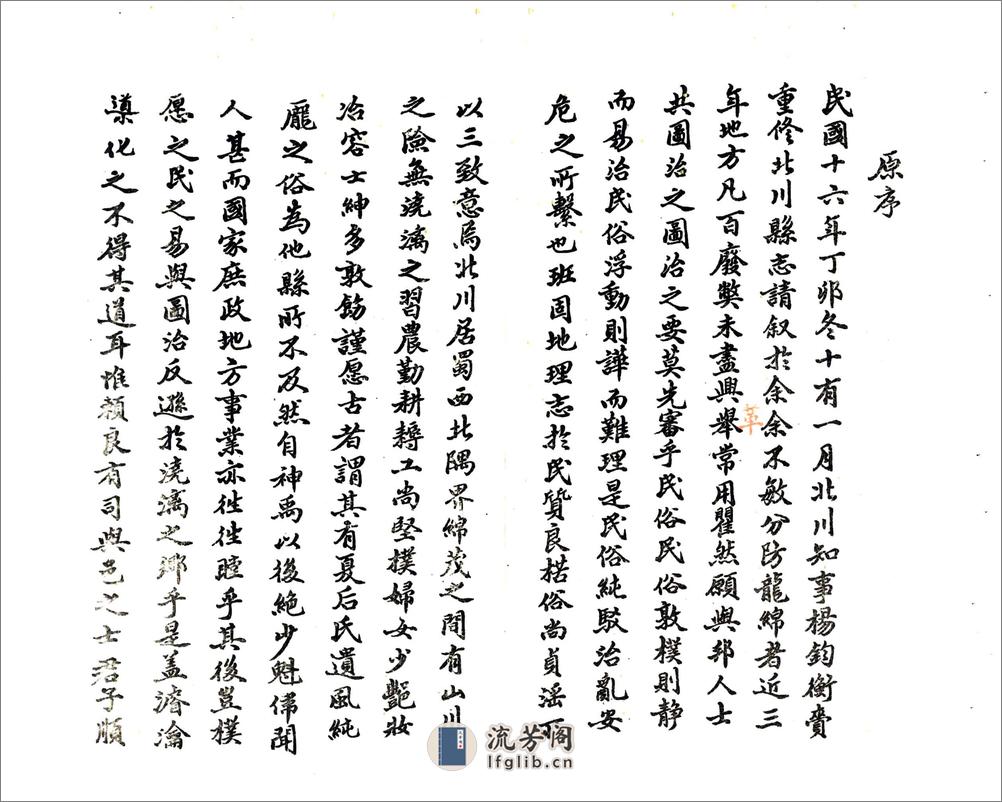 原序
民國十六年丁卯冬十有一月北川知事楊鈞衡賫
重修北川縣志請叙於余余不敏分防龍綿者近三
年地方凡百廢獘未盡興舉常用瞿然願與邦人士
革
共圖治之圖治之要莫先審乎民俗民俗敦樸則静
而易治民俗浮動則譁而難理是民俗純駁治亂安
危之所繫也班固地理志於民質良楛俗尚貞滛
以三致意焉北川居蜀西北隅界綿茂之間有山川
之險無澆漓之習農勤耕耨工尚堅樸婦女少艷妝
冶容士紳多敦飭謹愿古者謂其有夏后氏遺風純
龐之俗為他縣所不及然自神禹以後絶少魁儒聞
人甚而國家庶政地方事業亦往往瞠乎其後豈樸
愿之民之易與圖治反遜於澆漓之鄉乎是盖濬瀹
導化之不得其道耳惟賴良有司與邑之士君子順
流芳阁
lfglib.cn